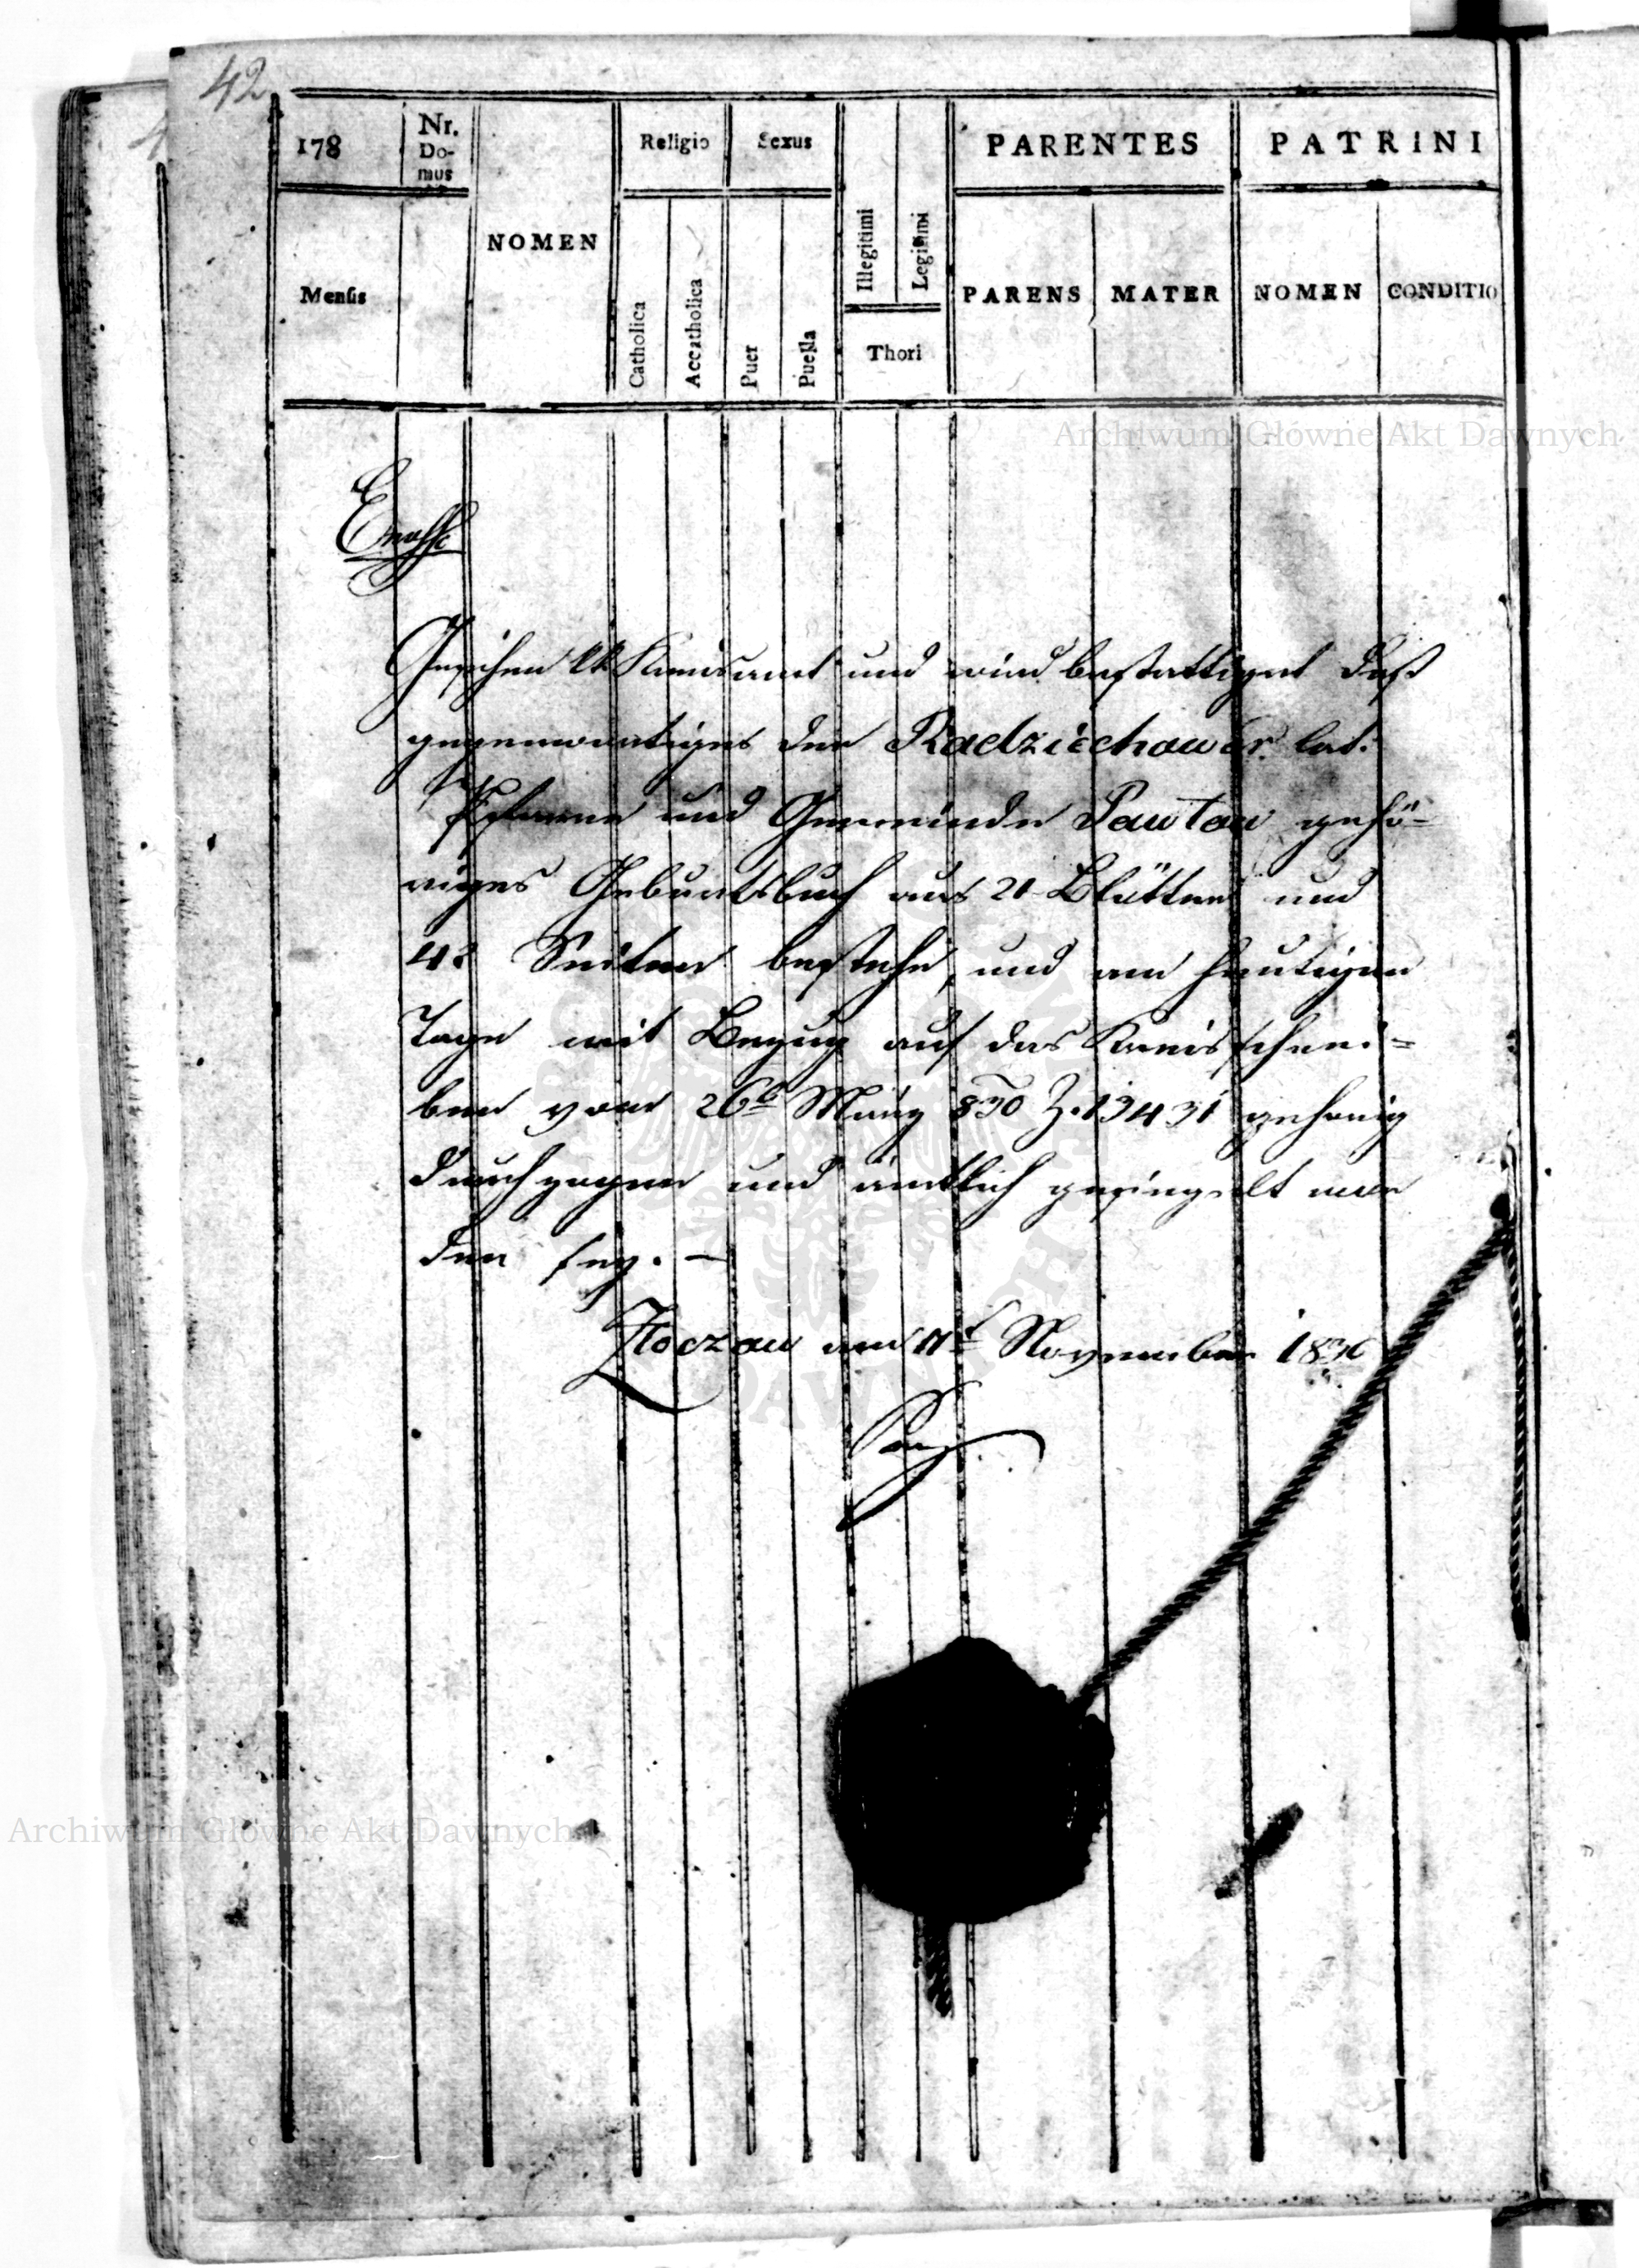 42
178
Nr. Do-
mus
NOMEN
Religio
Sexus
PARENTES
PATRINI
Mensis
Catholica
Accatholica
Puer
Puella
Illegitimi
Legitimi
Thori
PARENS
MATER
NOMEN
CONDITIO
Archiwum Głowne Akt Dawnych
Gesehen kk Kreisamt und wird bestattiget daß
gegenwärtiges der Radziechower lat:
Pfarre und Gemeinde Pawłow gehö=
riges Geburtsbuch aus 21 Blätter und
42 Seiten bestehe, und am heutigen
Tage mit Bezug auf das Kreisschrei=
ben vom 26t März 830 Z. 13431 gehörig
durchzogen und ämtlich gesiegelt wor
den sey. —
Złoczow am November
Archiwum Głowne Akt Dawnych